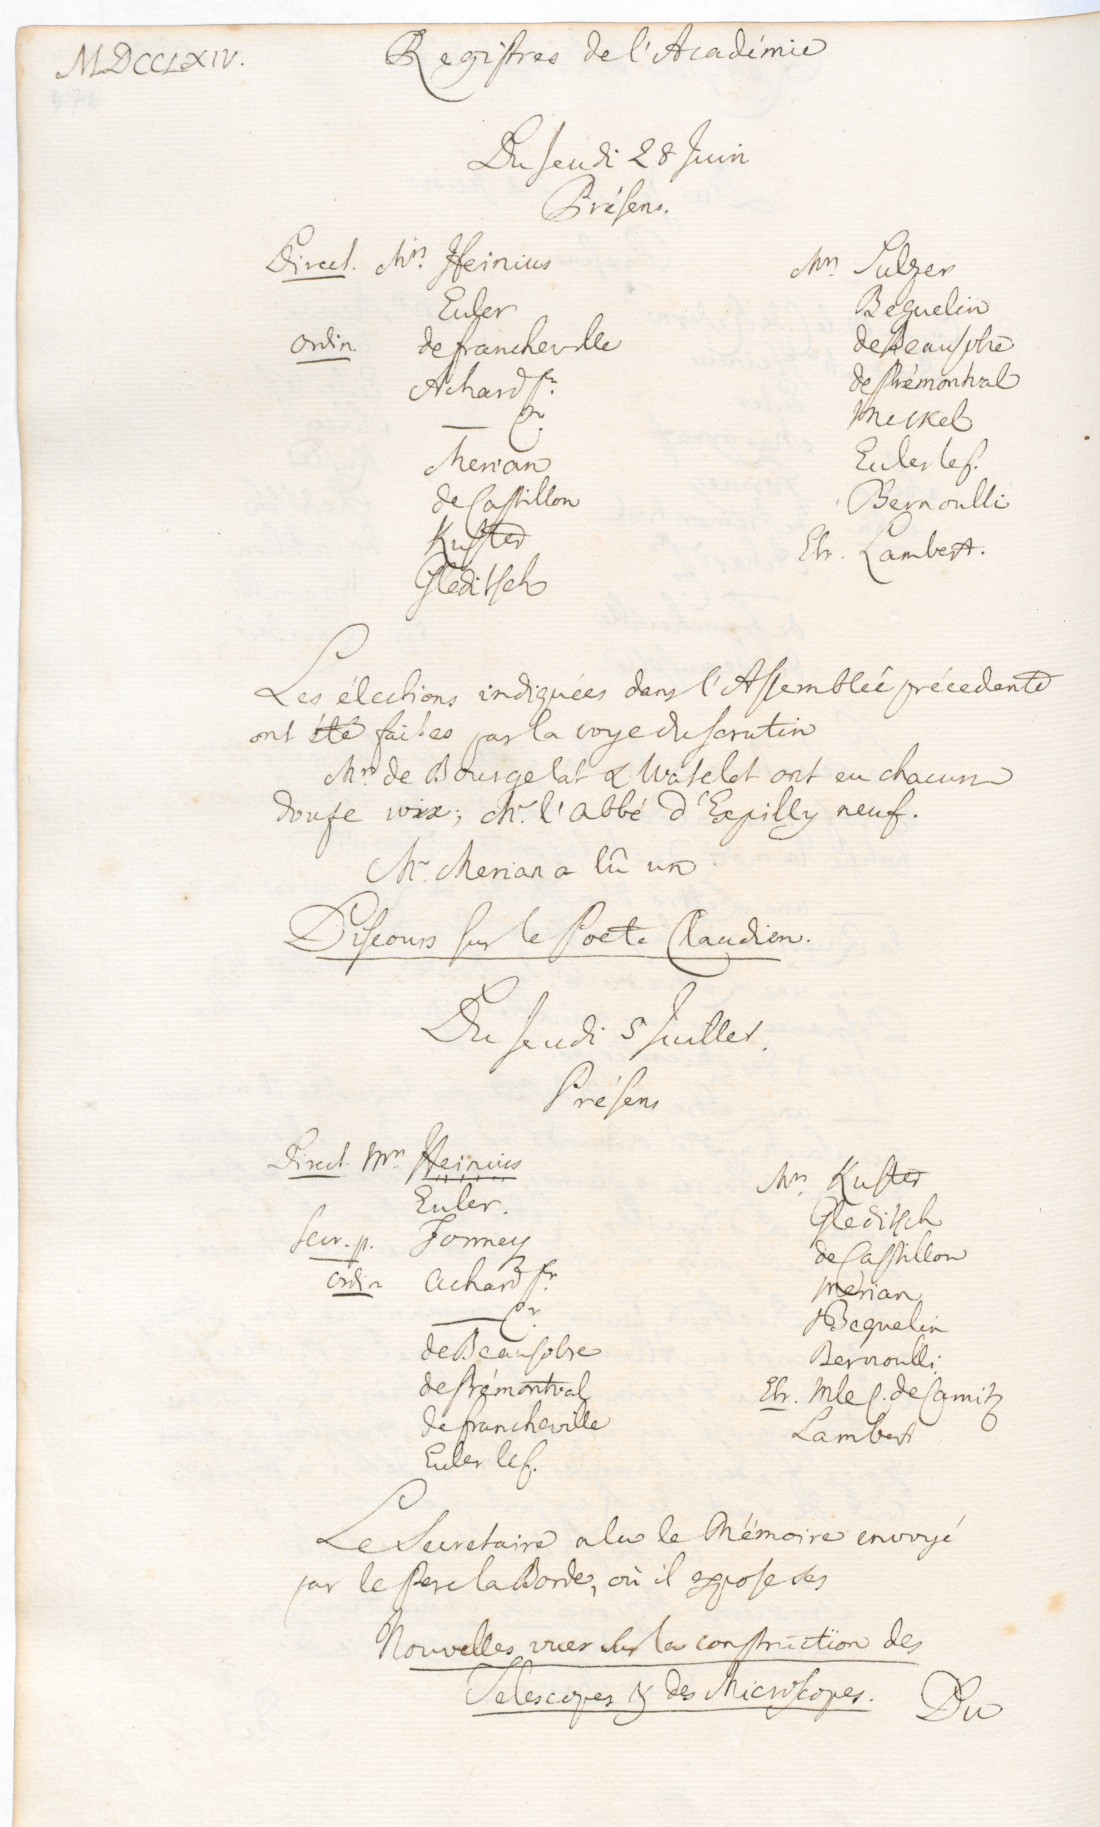 MDCCLXIV.
Registres de l'Académie
Du Jeudi 28 Juin
Présens.
Direct. Mrs. Heinius
Euler
ordin. de Francheville
Achard Sr.
— Pr.
Merian
de Castillon
Kuster
Gleditsch
Mrs Sulzer
Beguelin
de Beausobre
de Prémontval
Meckel
Euler le f.
Bernoulli
Etr. Lambert.
Les élections indiquées dans l'Assemblée précedente
ont été faites par la voye du scrutin
Mrs de Bourgelat & Watelet ont eu chacun
douze voix; Mr. l'abbé d'Expilly neuf.
Mr. Merian a lû un
Discours sur le Poete Claudien.
Du Jeudi 5 Juillet.
Présens
Direct. Mrs Heinius
Euler.
Secr. p. Formey
ordin Achard Sr.
— Pr.
de Beausobre
de Prémontval
de Francheville
Euler le f.
Mrs. Kuster
Gleditsch
de Castillon
Merian
Beguelin
Bernoulli
Etr. M le C. de Carnitz
Lambert
Le Secretaire a lu le Mémoire envoyé
par le Pere la Borde, où il expose des
Nouvelles vues sur la construction des
Telescopes & des Microscopes.
Du